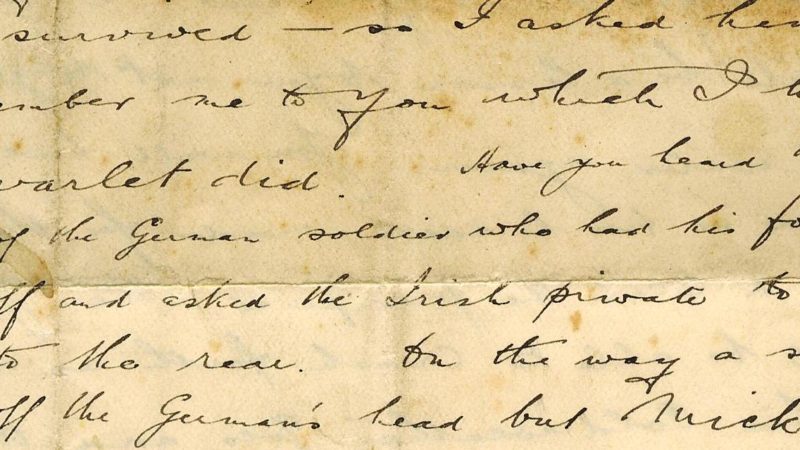 survived — so I asked her
ember me to you which I h
varlet did. Have you heard
of the German soldier who had his fo
ff and asked the Irish private to
to the rear. On the way a s
ff the German's head but Mick